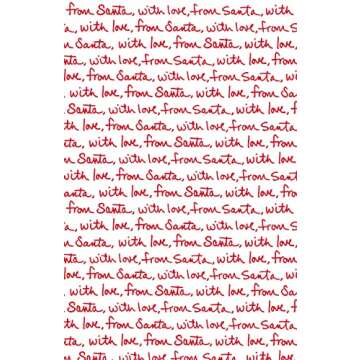 from Santa, with love, from Santa, with
, with love, from Santa, with love, from S
Santa, with love, from Santa, with love,
nta, with love, from Santa, with love, from
love, from Santa, with love, from Santa, wi
with love, from Santa, with love, from Sa
Santa, with love, from Santa, with love,
th love, from Santa, with love, from Santa
ta, with love, from Santa, with love, from
m Santa, with love, from Santa, with love
with love, from Santa, with love, from San
anta, with love, from Santa, with love, fro
from Santa, with love, from Santa, with
, with love, from Santa, with love, from S
Santa, with love, from Santa, with love,
nta, with love, from Santa, with love, from
love, from Santa, with love, from Santa, wi
with love, from Santa, with love, from Sa
Santa, with love, from Santa, with love,
th love, from Santa, with love, from Santa
ta, with love, from Santa, with love, from
m Santa, with love, from Santa, with love